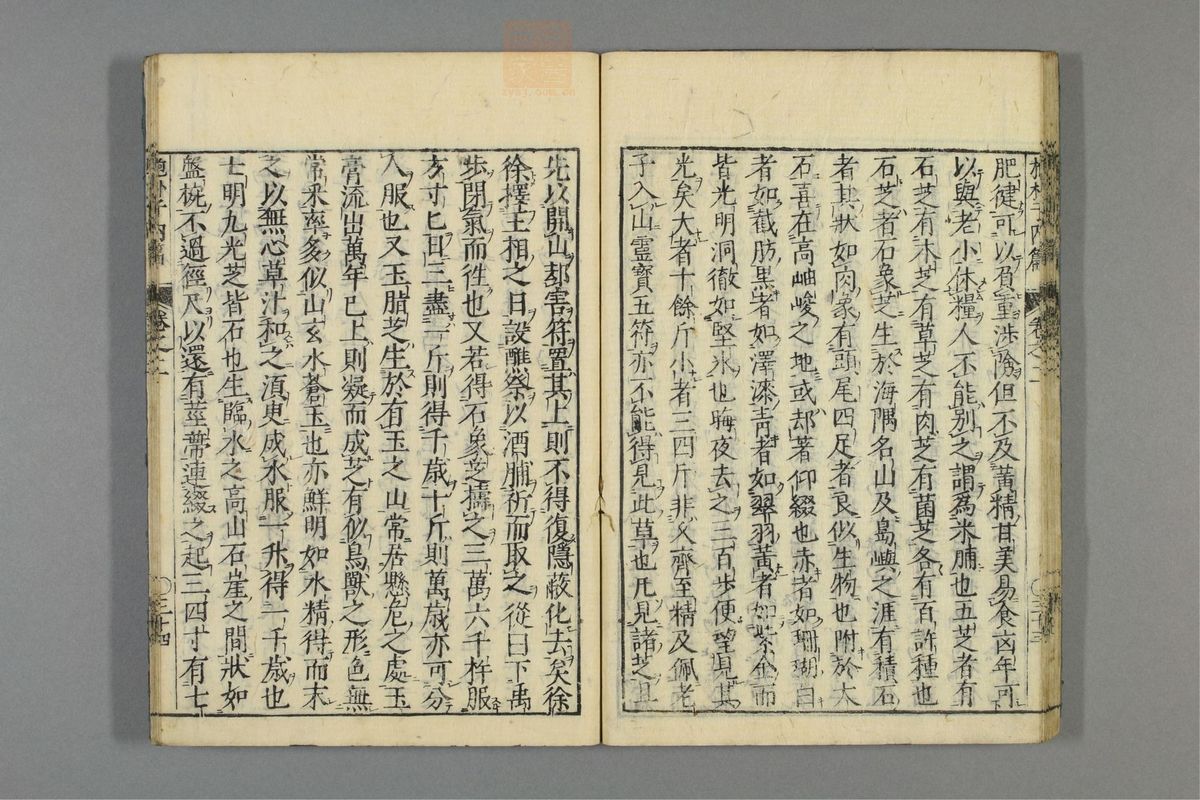 肥健可以負重涉險但不及黃精甘美易食凶年可
以與老小休糧人不能別之謂爲米脯也五芝者有
石芝有木芝有草芝有肉芝有菌芝各有百許種也
石芝者石象芝生於海隅名山及島嶼之涯有積石
者其狀如肉象有頭尾四足者良似生物也附於大
石喜在高岫嶮峻之地或却著仰綴也赤者如珊瑚白
者如截肪黒者如澤漆青者如翠羽黃者如紫金而
皆光明洞徹如堅氷也晦夜去之三百步便望見其
光矣大者十餘斤小者三四斤非久齊至精及佩老
子入山靈寶五符亦不能得見此草也凡見諸芝且
先以開山却害符置其上則不得復隱蔽化去矣徐
徐擇王相之日設醮祭以酒脯祈而取之從日下禹
步閉氣而徃也又若得石象芝擣之三萬六千杵服
方寸匕日三盡一斤則得千歲十斤則萬歲亦可分
人服也又玉脂芝生於有玉之山常居懸危之處玉
膏流出萬年已上則凝而成芝有似鳥獸之形色無
常釆率多似山玄水蒼玉也亦鮮明如水精得而末
之以無心草汁和之湏臾成水服一升得一千歲也
七明九光芝皆石也生臨水之高山石崖之間狀如
盤椀不過徑尺以還有莖蔕連綴之起三四寸有七
抱朴子内篇 卷之二 三十四